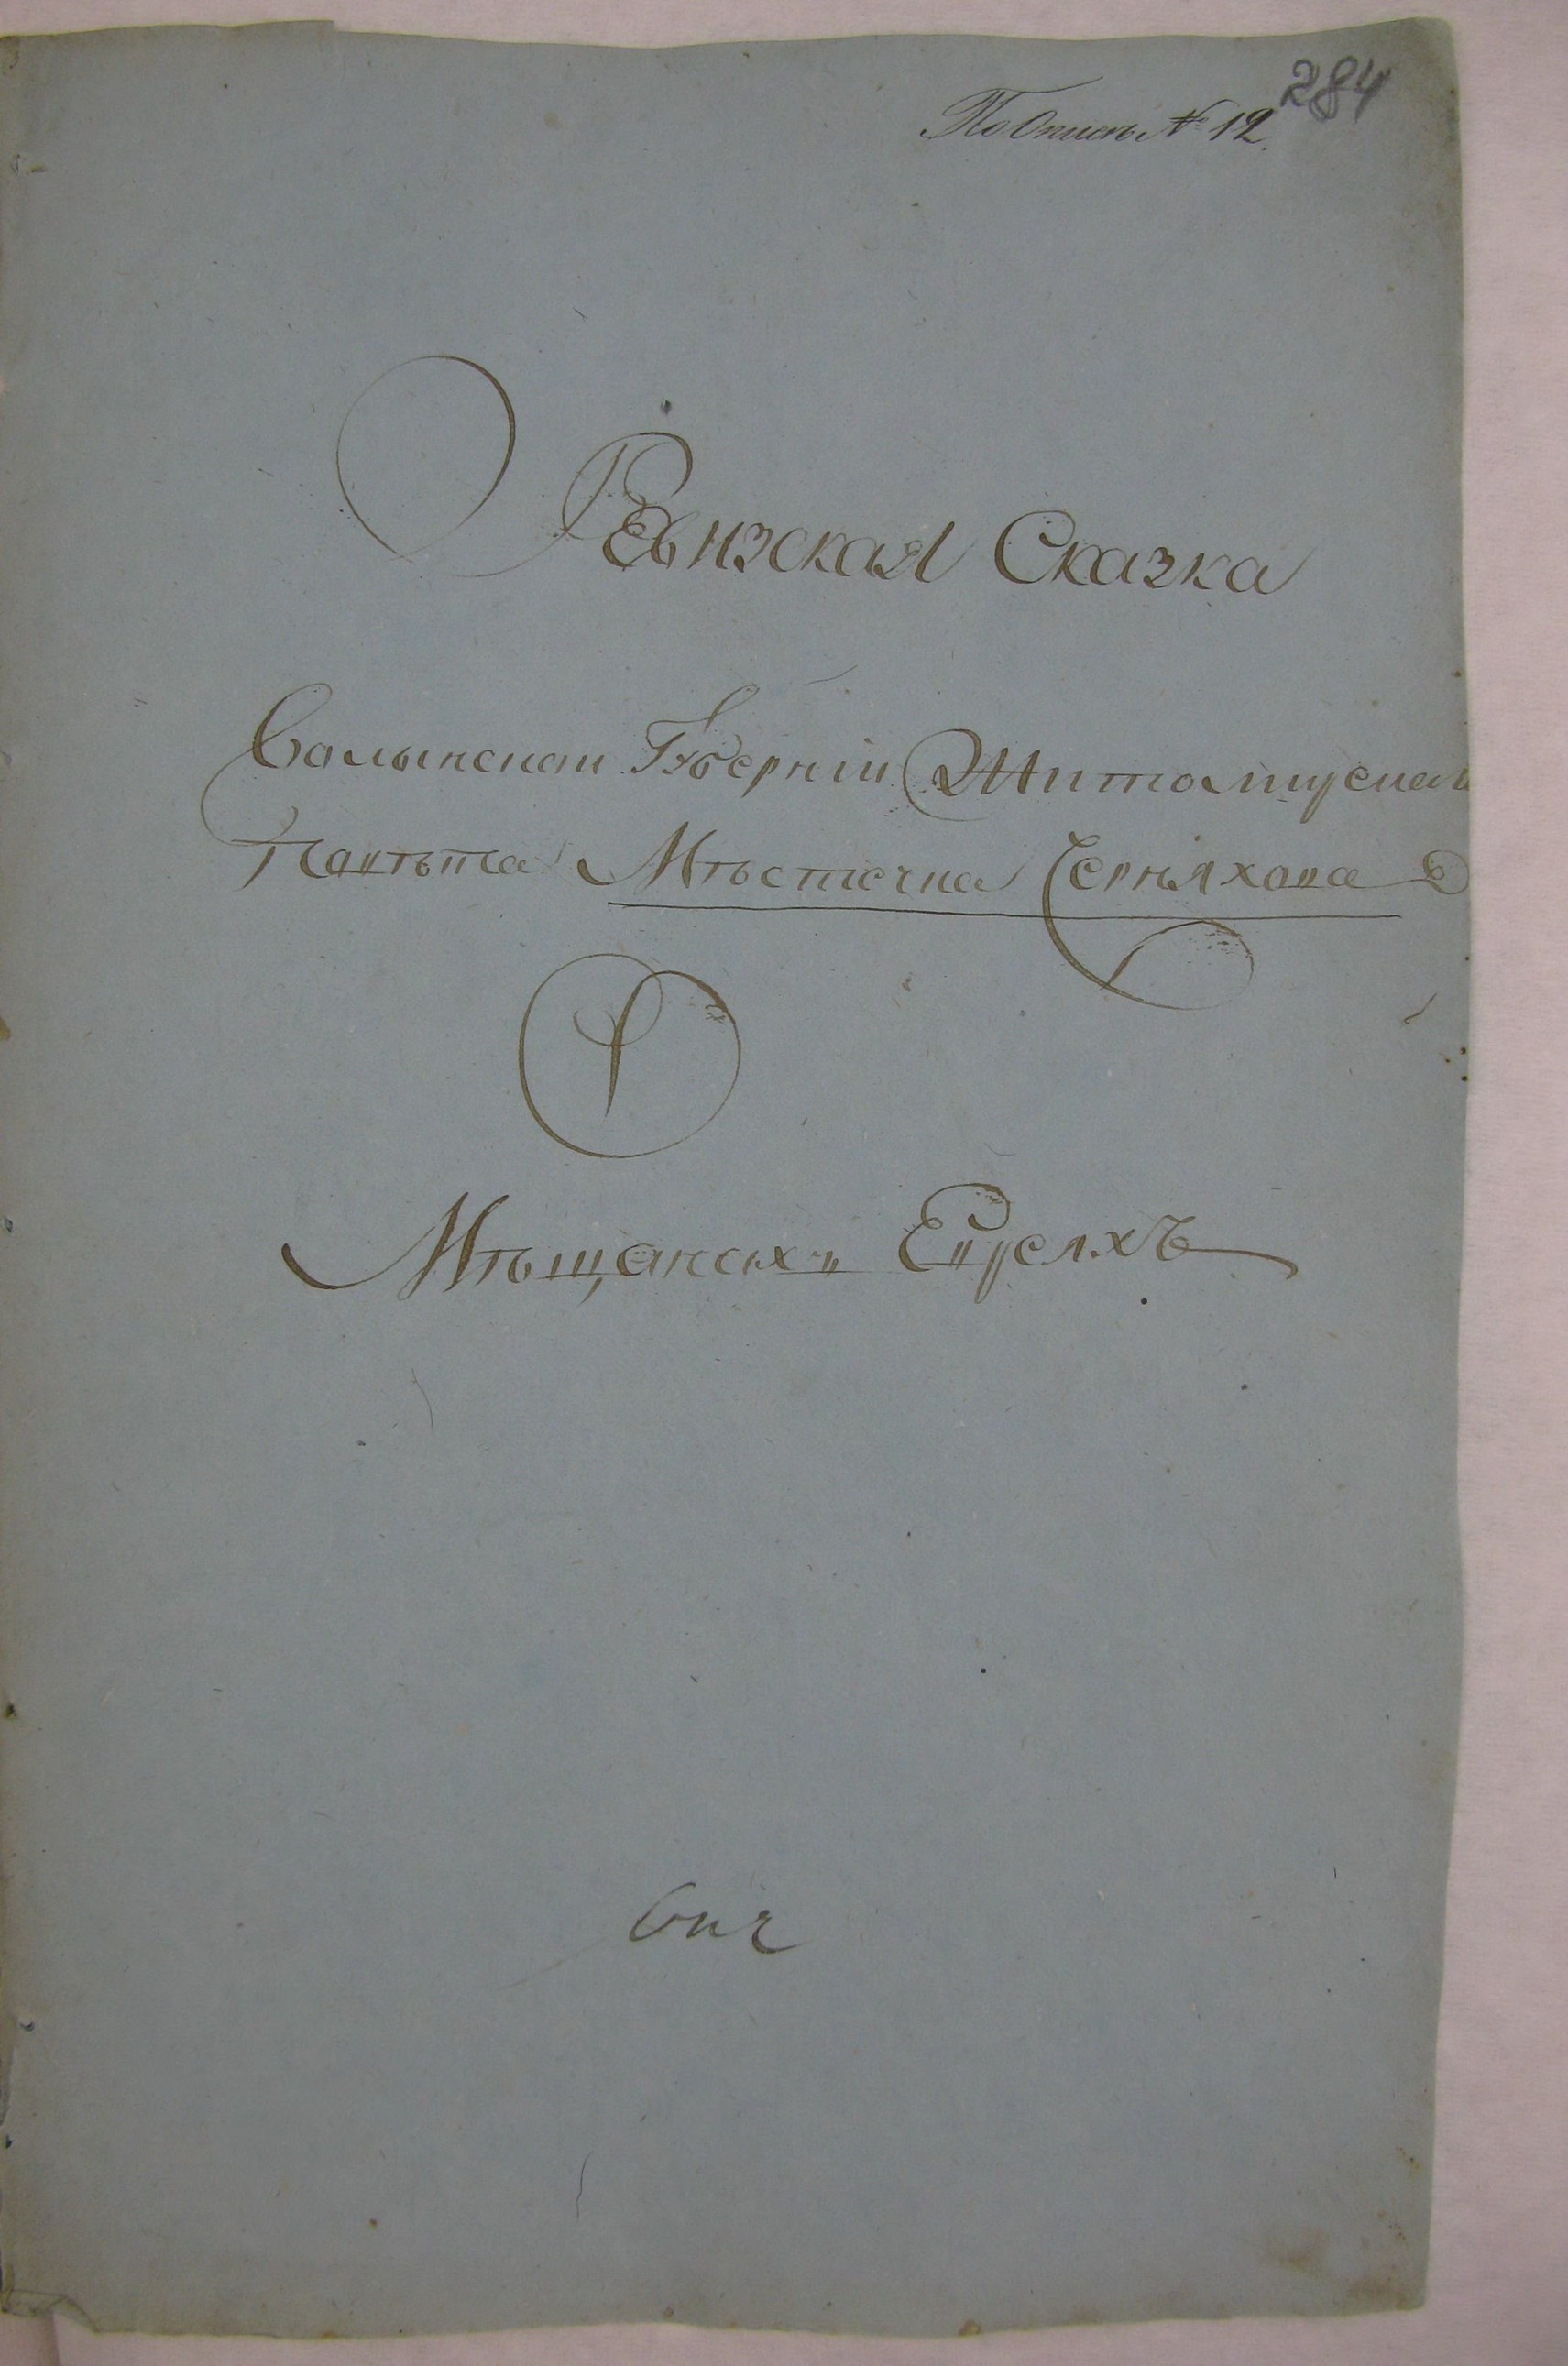 284
По Описи № 12.
Ревизская Сказка
Волынской Губернiи Житомирскаго
Повѣта Мѣстечка Черняхова
О
Мѣщанахъ Евреяхъ